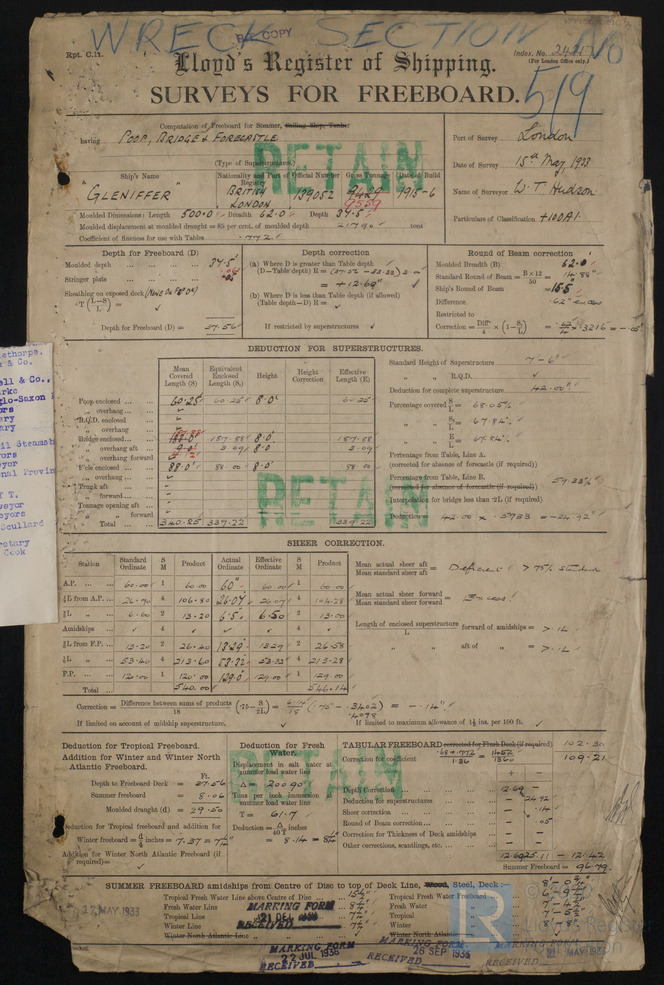 WRECK SECTION No
519
COPY
Rpt. C.11.
Index. No.
(For London Office only.)
Lloyd's Register of Shipping.
SURVEYS FOR FREEBOARD.
Computation of Freeboard for Steamer, Sailing Ship, Tanker
having POOP, BRIDGE & FORECASTLE
(Type of Superstructures.)
Port of Survey London
Date of Survey 15th May, 1933
Name of Surveyor W. T. Hudson
Particulars of Classification +100A1
RETAIN
Ship's Name
Nationality and Port of Registry
Official Number
Gross Tonnage
Date of Build
"GLENIFFER"
BRITISH
LONDON
139052
9429
9559
1915-6
Moulded Dimensions: Length 500.0 Breadth 62.0 Depth 34.5
Moulded displacement at moulded draught = 85 per cent. of moulded depth 21790 tons
Coefficient of fineness for use with Tables .772
Depth for Freeboard (D)
Moulded depth 34.5
Stringer plate
Sheathing on exposed deck
Depth for Freeboard (D) = 37.56
Depth correction
(a) Where D is greater than Table depth
(D—Table depth) R =
= + 12.69"
(b) Where D is less than Table depth (if allowed)
(Table depth—D) R =
If restricted by superstructures
Round of Beam correction
Moulded Breadth (B) 62.0
Standard Round of Beam = B × 12 / 50 = 14.88"
Ship's Round of Beam = 15.5
Difference .62"
Restricted to
Correction = Diff / 4 × (1 − S/L) =
DEDUCTION FOR SUPERSTRUCTURES.
Mean Covered Length (S)
Equivalent Enclosed Length (S₁)
Height
Height Correction
Effective Length (E)
Poop enclosed 60.25 60.25 8.0 60.25
" overhang
R.Q.D. enclosed
" overhang
Bridge enclosed 157.88 8.0 157.88
" overhang aft 3.09 8.0 3.09
" overhang forward
F'cle enclosed 88.0 88.00 8.0 88.00
" overhang
Trunk aft
" forward
Tonnage opening aft
" " forward
Total 340.25 339.22 339.22
Standard Height of Superstructure 7-6
" " R.Q.D.
Deduction for complete superstructure 42.00"
Percentage covered S/L = 68.05%
" " S₁/L = 67.84%
" " E/L = 67.84%
Percentage from Table, Line A.
(corrected for absence of forecastle (if required))
Percentage from Table, Line B. 59.33%
(corrected for absence of forecastle (if required))
Interpolation for bridge less than .2L (if required)
Deduction = 42.00 × .5933 = −24.92"
RETAIN
SHEER CORRECTION.
Station
Standard Ordinate
S M
Product
Actual Ordinate
Effective Ordinate
S M
Product
A.P. 60.00 1 60.00 60" 60.00 1 60.00
⅙L from A.P. 26.70 4 106.80 26.07 26.07 4 104.28
⅓L " 6.60 2 13.20 6.5 6.50 2 13.00
Amidships 4 4
⅓L from F.P. 13.20 2 26.40 13.29 13.29 2 26.58
⅙L " 53.40 4 213.60 53.32 53.32 4 213.28
F.P. 120.00 1 120.00 129.0 129.00 1 129.00
Total 540.00 546.14
Mean actual sheer aft / Mean standard sheer aft = Deficient > 75% standard
Mean actual sheer forward / Mean standard sheer forward = Excess
Length of enclosed superstructure / L forward of amidships = > .1L
" " aft of " = > .1L
Correction = Difference between sums of products / 18 (.75 − S/2L) = 6.14 / 18 (.75 − .3402) = −.14"
.4098
If limited on account of midship superstructure.
If limited to maximum allowance of 1½ ins. per 100 ft.
Deduction for Tropical Freeboard.
Addition for Winter and Winter North Atlantic Freeboard.
Ft.
Depth to Freeboard Deck = 37.56
Summer freeboard = 8.06
Moulded draught (d) = 29.50
Deduction for Tropical freeboard and addition for Winter freeboard = d/4 inches = 7.37 = 7¼
Addition for Winter North Atlantic Freeboard (if required) =
Deduction for Fresh Water.
Displacement in salt water at summer load water line
Δ = 20090
Tons per inch immersion at summer load water line
T = 61.7
Deduction = Δ / 40T inches
= 8.14 = 8¼
TABULAR FREEBOARD corrected for Flush Deck (if required) 102.30
Correction for coefficient .68+.772 / 1.36 = 1452 / 1360 109.21
+ −
Depth Correction 12.69 −
Deduction for superstructures − 24.92
Sheer correction − .14
Round of Beam correction − .05
Correction for Thickness of Deck amidships − −
Other corrections, scantlings, etc. − −
12.69 25.11 −12.42
Summer Freeboard = 96.79
RETAIN
SUMMER FREEBOARD amidships from Centre of Disc to top of Deck Line, Wood, Steel, Deck :—
Tropical Fresh Water Line above Centre of Disc
Fresh Water Line
Tropical Line
Winter Line
Winter North Atlantic Line
Tropical Fresh Water Freeboard
Fresh Water
Tropical
Winter
Winter North Atlantic
27 MAY 1933
MARKING FORM
21 DEC
RECEIVED
MARKING FORM
22 JUL 1936
RECEIVED
MARKING FORM
RECEIVED
MAY 1933